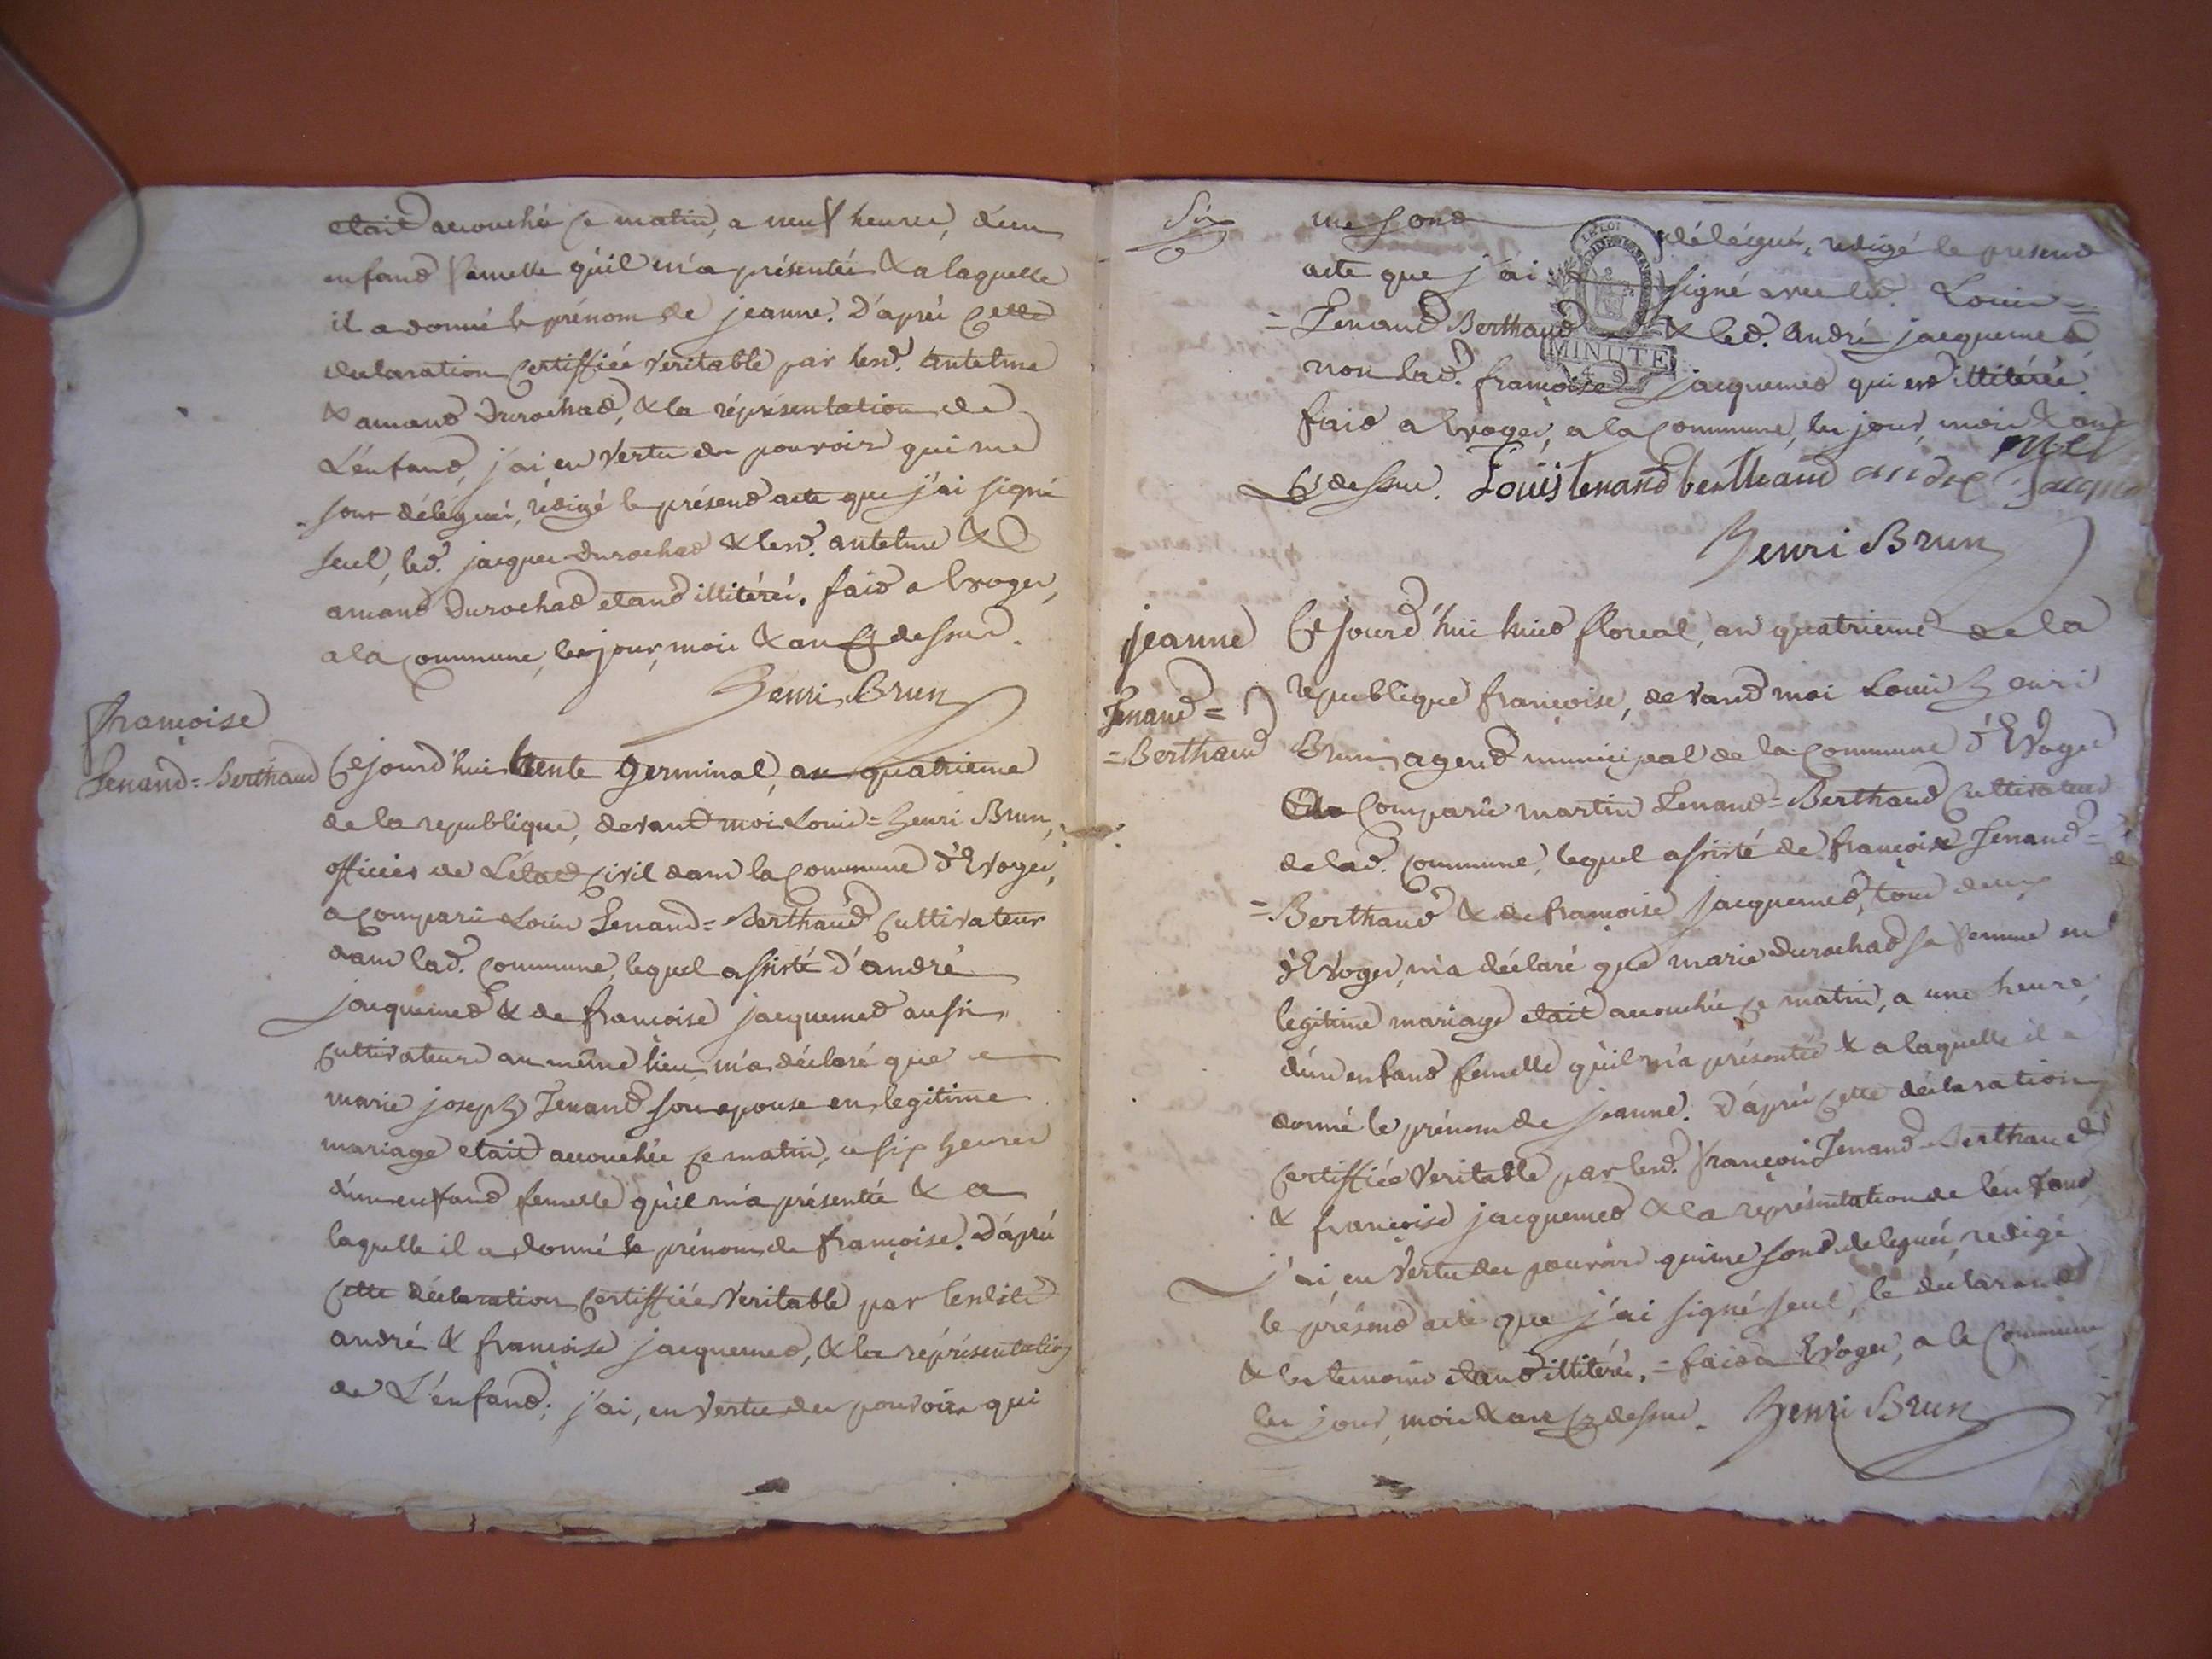 etait accouchée ce matin, a neuf heures, d'un
enfand femelle qu'il m'a présentée & a laquelle
il a donné le prénom de jeanne. D'aprés cette
declaration certiffiée veritable par lesd. antelme
& amand Durochad, & la réprésentation de
L'enfand, j'ai en vertu des pouvoirs qui me
sont délégués, rédigé le présend acte que j'ai signé
seul, led. jacques Durochad & lesd. antelme &
amand Durochad etand illitérés. faid a Evoges,
a la commune, les jour, mois & an cy dessus.
Henri Brun
françoise
Tenand=Berthand
Cejourd'hui trente Germinal, an quatrieme
de la republique, devand moi Louis=henri Brun,
officier de L'état civil dans la commune d'Evoges,
a comparu Louis Tenand=Berthaud cultivateur
dans lad. commune, lequel assisté d'andré
jacquemed & de françoise jacquemed aussi
cultivateurs au même lieu, m'a déclaré que
marie joseph Tenand son epouse en legitime
mariage etait accouchée ce matin, a six heures
d'un enfand femelle qu'il m'a présentée & a
laquelle il a donné le prénom de françoise. D'aprés
cette déclaration certiffiée veritable par lesdits
andré & françoise jacquemed, & la réprésentation
de L'enfand; j'ai, en vertu des pouvoirs qui
Six
me sond délégués, redigé le presend
acte que j'ai signé avec led. Louis=
=Tenand Berthaud & led. André jacquemed
non lad. françoise jacquemed qui est illitérée.
faid a Evoges, a la commune, les jour, mois & an
cy dessus. Louis tenand berthaud andré Jacque
met
Henri Brun
LA LOI
MINUTE
4 S
jeanne
Tenand=
=Berthaud
Cejourd'hui huid floreal, an quatrieme de la
republique françoise, devand moi Louis henri
Brun, agend municipal de la commune d'Evoges
a comparu martin Tenand=Berthaud cultivateur
de lad. commune, lequel assisté de françois Tenand=
=Berthaud & de françoise jacquemed, tous deux
d'Evoges, m'a déclaré que marie durochad sa femme en
legitime mariage etait accouchée ce matin, a une heure,
d'un enfand femelle qu'il m'a présentée & a laquelle il a
donné le prénom de jeanne. D'aprés cette déclaration
certiffiée veritable par lesd. françois Tenand-Berthaud
& françoise jacquemed & la représentation de l'enfand,
j'ai en vertu des pouvoirs qui me sond delegués, redigé
le présend acte que j'ai signé seul, le declarand
& les temoins etand illitérés. = faid a Evoges, a la commune
les jour, mois & an cy dessus. Henri Brun